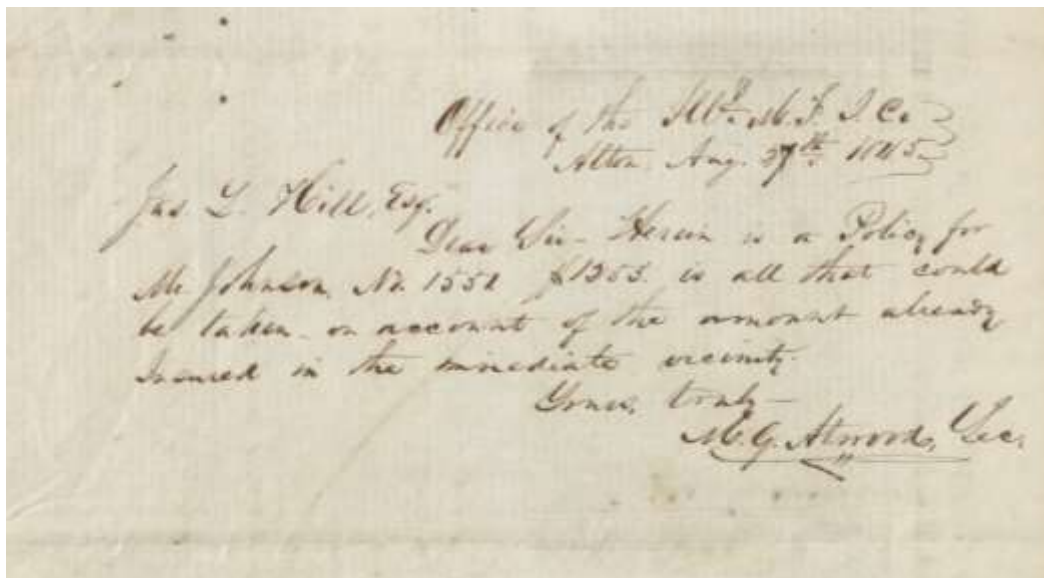 Office of the Ills. M. F. I. Co
Alton, Aug. 27th 1845
Jas. L. Hill, Esq.
Dear Sir - Herein is a Policy for
Mr Johnson, No. 1551 $1355. is all that could
be taken - on account of the amount already
Insured in the immediate vicinity.
Yours, truly -
M. G. Atwood, Sec.